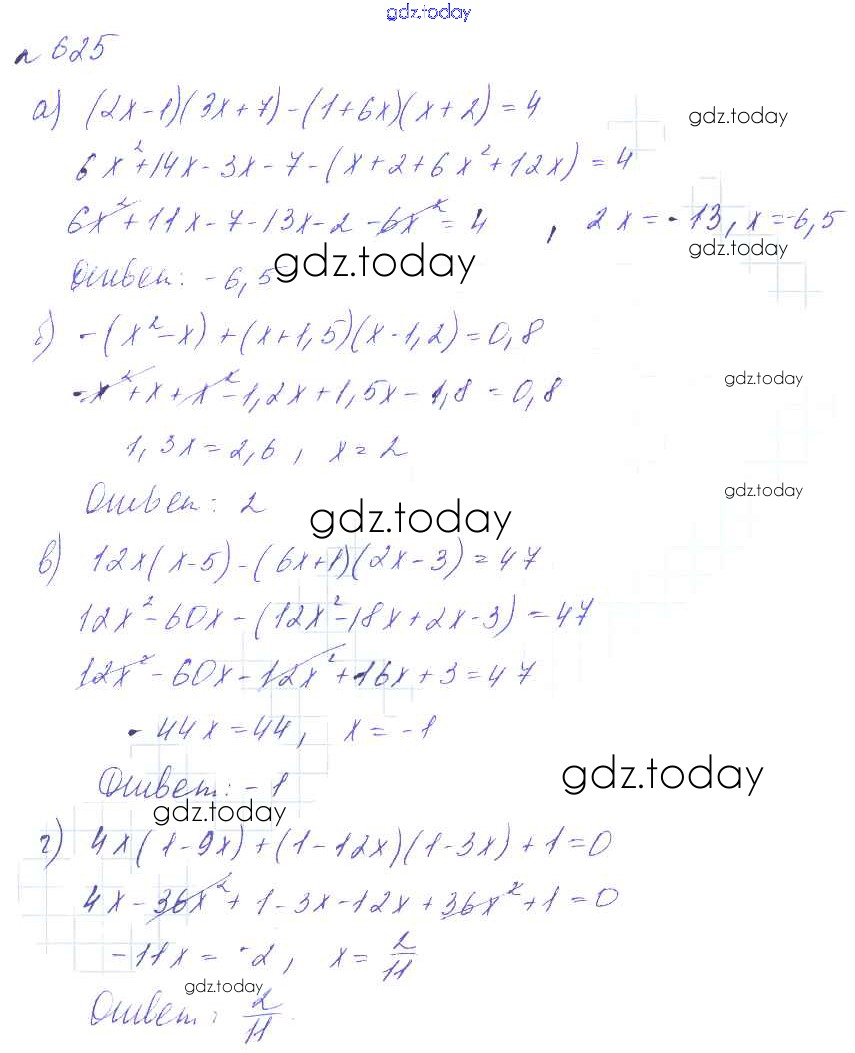 gdz.today
№ 625
а) (2x-1)(3x+7)-(1+6x)(x+2)=4
gdz.today
6x²+14x-3x-7-(x+2+6x²+12x)=4
6x²+11x-7-13x-2-6x²=4, 2x=-13, x=-6,5
gdz.today
Ответ: -6,5
gdz.today
б) -(x²-x)+(x+1,5)(x-1,2)=0,8
gdz.today
-x²+x+x²-1,2x+1,5x-1,8=0,8
1,3x=2,6, x=2
gdz.today
Ответ: 2
gdz.today
в) 12x(x-5)-(6x+1)(2x-3)=47
12x²-60x-(12x²-18x+2x-3)=47
12x²-60x-12x²+16x+3=47
-44x=44, x=-1
gdz.today
Ответ: -1
gdz.today
г) 4x(1-9x)+(1-12x)(1-3x)+1=0
4x-36x²+1-3x-12x+36x²+1=0
-11x=-2, x=2/11
gdz.today
Ответ: 2/11